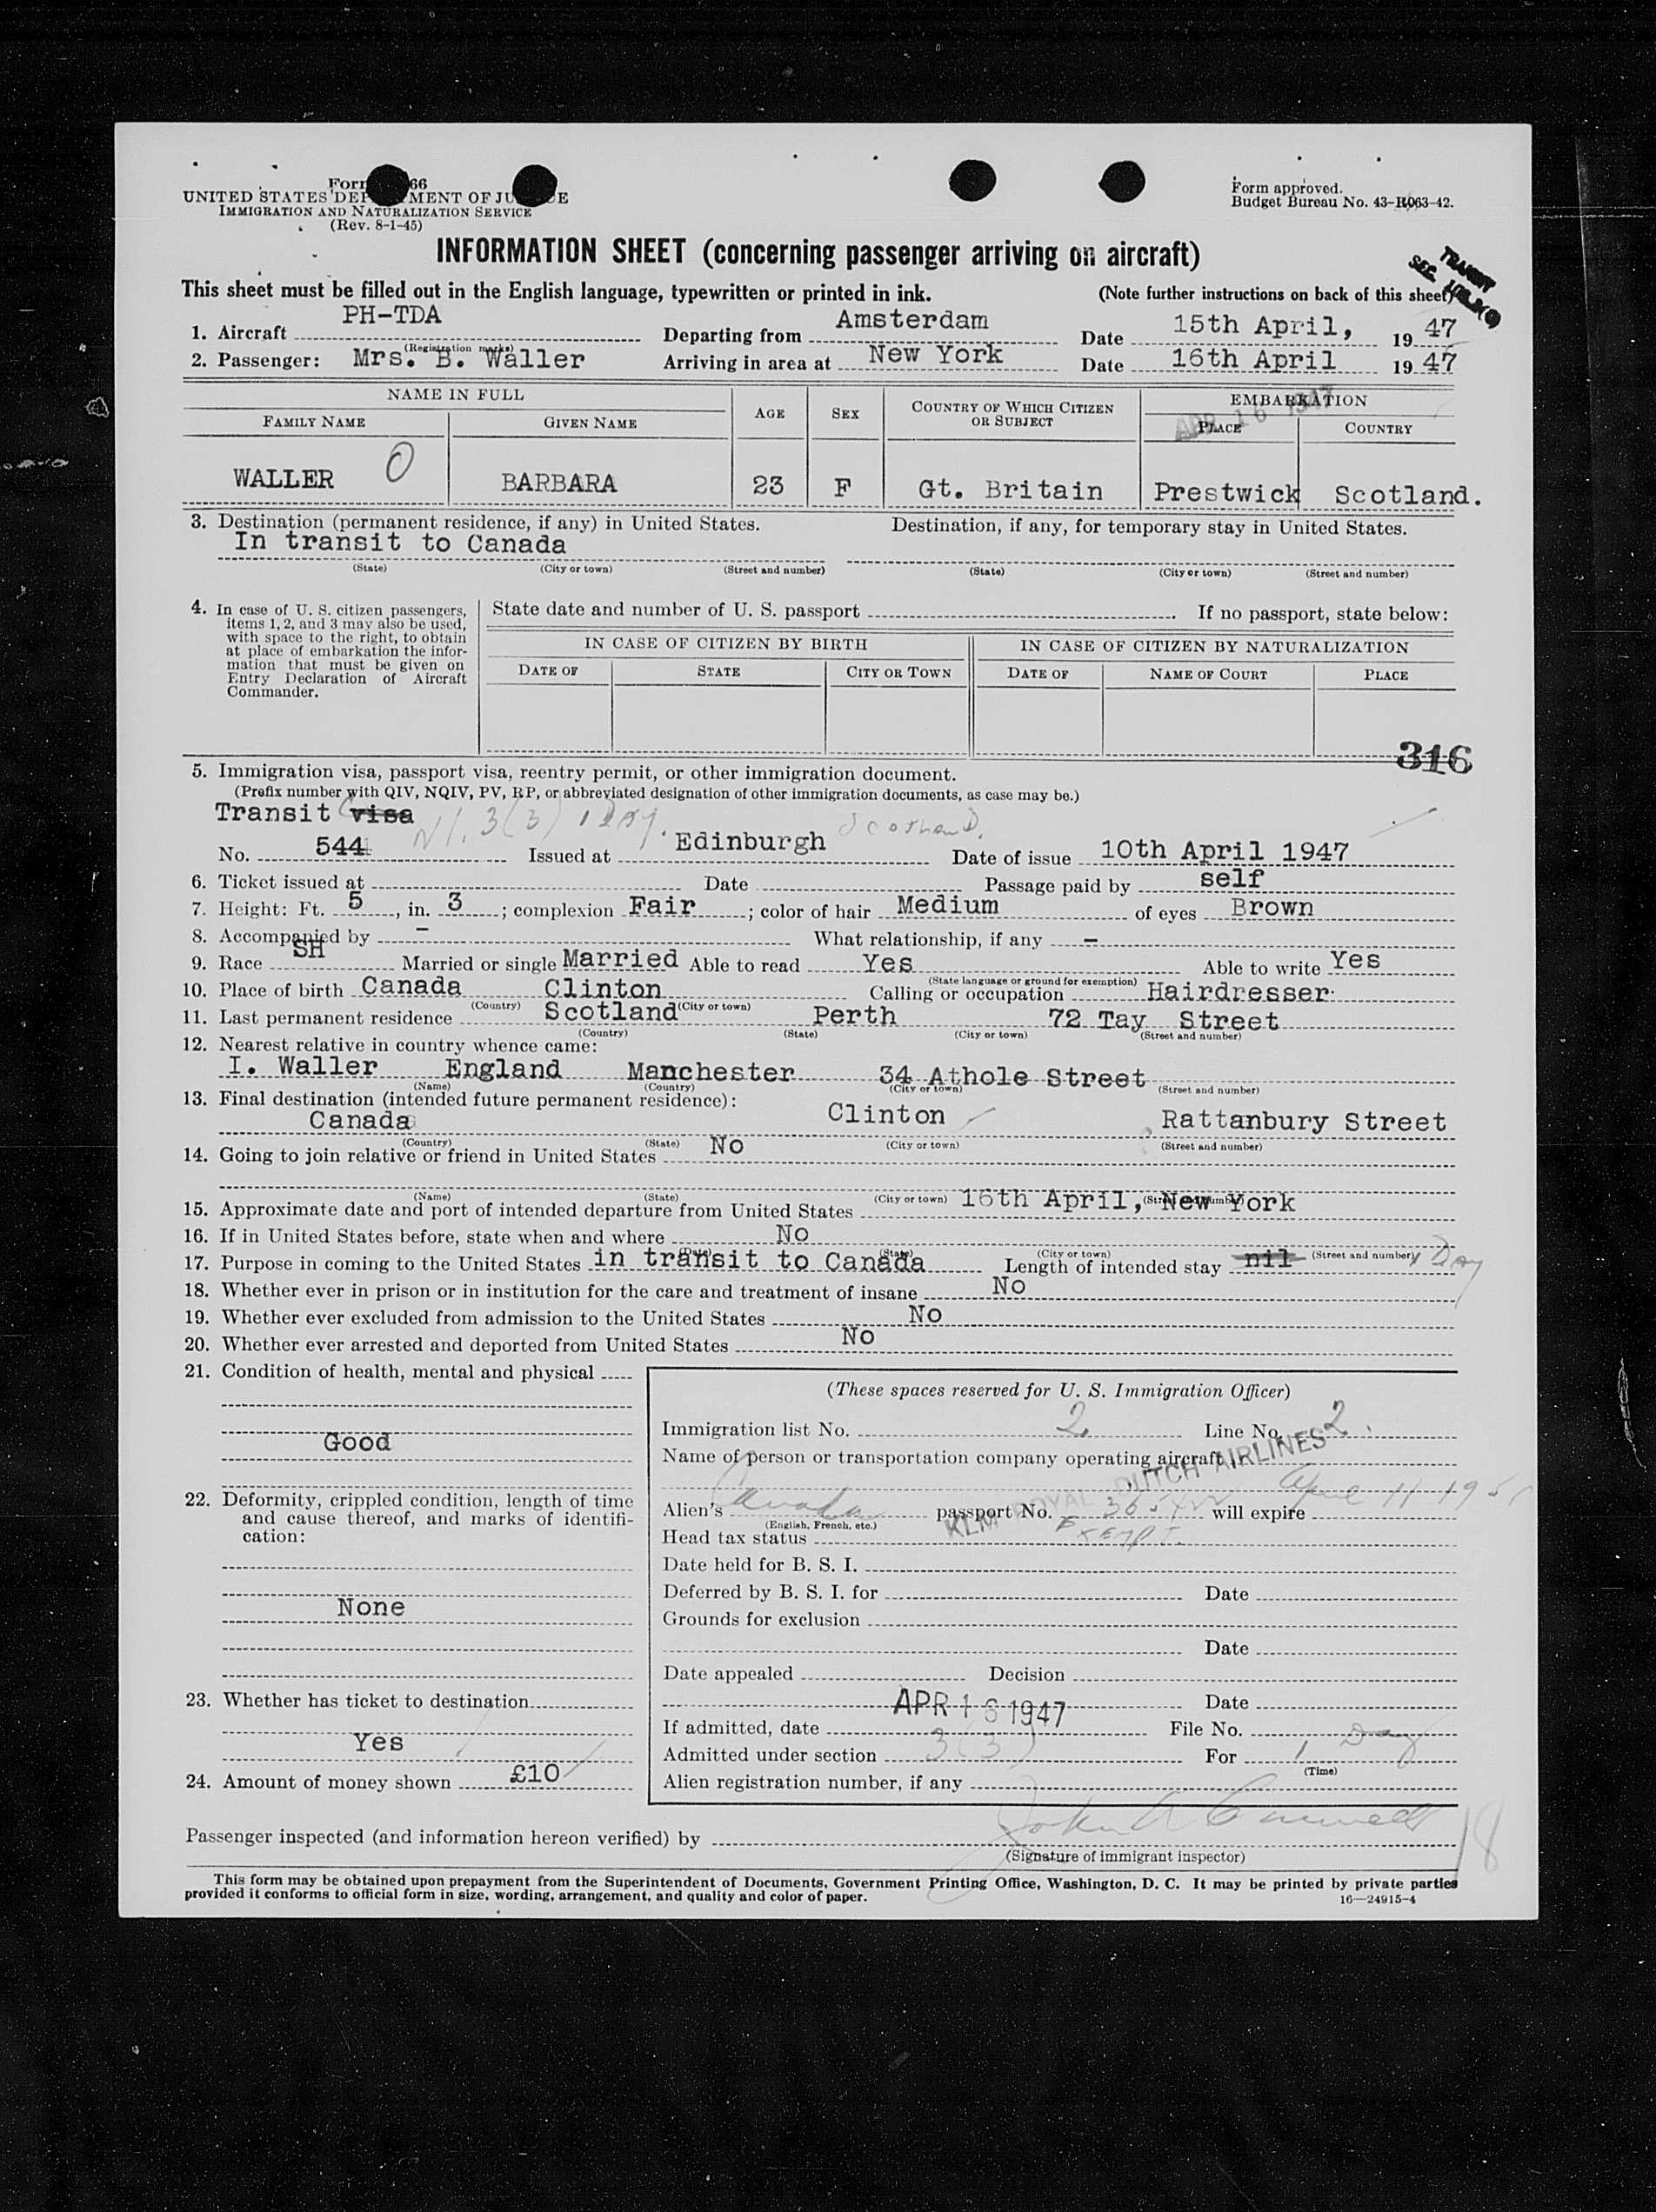 Form 66
UNITED STATES DEPARTMENT OF JUSTICE
IMMIGRATION AND NATURALIZATION SERVICE
(Rev. 8-1-45)
Form approved.
Budget Bureau No. 43-R063-42.
INFORMATION SHEET (concerning passenger arriving on aircraft)
TRANSIT
SEC.
This sheet must be filled out in the English language, typewritten or printed in ink. (Note further instructions on back of this sheet)
1. Aircraft PH-TDA Departing from Amsterdam Date 15th April, 19 47
(Registration marks)
2. Passenger: Mrs. B. Waller Arriving in area at New York Date 16th April 19 47
NAME IN FULL AGE SEX COUNTRY OF WHICH CITIZEN OR SUBJECT EMBARKATION
APR 16 1947
FAMILY NAME GIVEN NAME PLACE COUNTRY
WALLER O BARBARA 23 F Gt. Britain Prestwick Scotland.
3. Destination (permanent residence, if any) in United States. Destination, if any, for temporary stay in United States.
In transit to Canada
(State) (City or town) (Street and number) (State) (City or town) (Street and number)
4. In case of U. S. citizen passengers, items 1, 2, and 3 may also be used, with space to the right, to obtain at place of embarkation the information that must be given on Entry Declaration of Aircraft Commander.
State date and number of U. S. passport . If no passport, state below:
IN CASE OF CITIZEN BY BIRTH IN CASE OF CITIZEN BY NATURALIZATION
DATE OF STATE CITY OR TOWN DATE OF NAME OF COURT PLACE
316
5. Immigration visa, passport visa, reentry permit, or other immigration document.
(Prefix number with QIV, NQIV, PV, RP, or abbreviated designation of other immigration documents, as case may be.)
Transit visa 3(3) 1 Day. Scotland.
No. 544 Issued at Edinburgh Date of issue 10th April 1947
6. Ticket issued at Date Passage paid by self
7. Height: Ft. 5, in. 3; complexion Fair; color of hair Medium of eyes Brown
8. Accompanied by - What relationship, if any -
9. Race SH Married or single Married Able to read Yes Able to write Yes
(State language or ground for exemption)
10. Place of birth Canada Clinton Calling or occupation Hairdresser
(Country) (City or town)
11. Last permanent residence Scotland Perth 72 Tay Street
(Country) (State) (City or town) (Street and number)
12. Nearest relative in country whence came:
I. Waller England Manchester 34 Athole Street
(Name) (Country) (City or town) (Street and number)
13. Final destination (intended future permanent residence):
Canada Clinton Rattanbury Street
(Country) (State) (City or town) (Street and number)
14. Going to join relative or friend in United States No
(Name) (State) (City or town) (Street and number)
15. Approximate date and port of intended departure from United States 16th April, New York
16. If in United States before, state when and where No
(Date) (State) (City or town) (Street and number)
17. Purpose in coming to the United States in transit to Canada Length of intended stay nil 1 Day
18. Whether ever in prison or in institution for the care and treatment of insane No
19. Whether ever excluded from admission to the United States No
20. Whether ever arrested and deported from United States No
21. Condition of health, mental and physical
Good
22. Deformity, crippled condition, length of time and cause thereof, and marks of identification:
None
23. Whether has ticket to destination
Yes
24. Amount of money shown £10
(These spaces reserved for U. S. Immigration Officer)
Immigration list No. 2 Line No. 2
Name of person or transportation company operating aircraft
KLM ROYAL DUTCH AIRLINES
Alien's Canada passport No. will expire April 11 19
(English, French, etc.)
Head tax status EXEMPT.
Date held for B. S. I.
Deferred by B. S. I. for Date
Grounds for exclusion
Date
Date appealed Decision
Date
If admitted, date APR 16 1947 File No.
Admitted under section 3(3) For 1 Day
(Time)
Alien registration number, if any
Passenger inspected (and information hereon verified) by
(Signature of immigrant inspector)
18
This form may be obtained upon prepayment from the Superintendent of Documents, Government Printing Office, Washington, D. C. It may be printed by private parties
provided it conforms to official form in size, wording, arrangement, and quality and color of paper. 16—24915-4